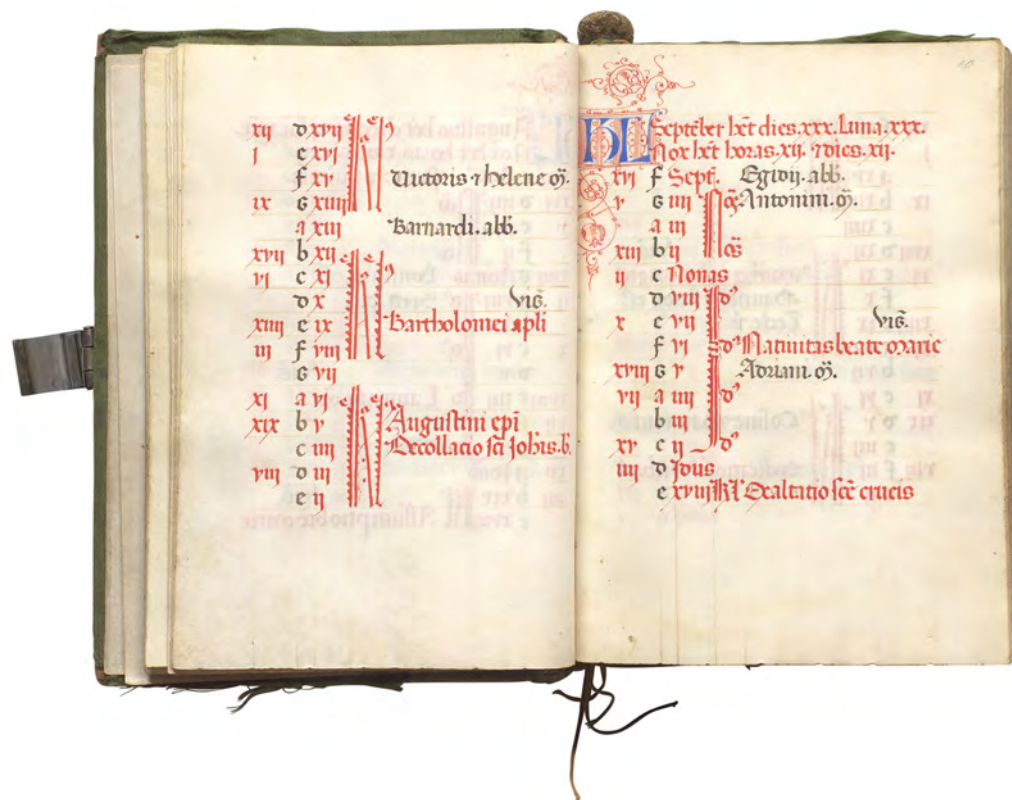 xii d xvii
i e xvi
f xv Victoris ⁊ helene m̃.
ix G xiiii
a xiii Barnardi. abb̃.
xvii b xii
vi c xi
d x vig̃.
xiiii e ix Bartholomei apli
iii f viii
G vii
xi a vi
xix b v Augustini ep̃i
c iiii Decollacio sc̃i Joh̃is. b.
viii d iii
e ii
10
KL Septẽber hẽt dies. xxx. Luna. xxx.
Nox hẽt horas. xii. ⁊ dies. xii.
xvi f Sept̃. Egidij. abb̃.
v G iiii Antonini. m̃.
a iii
xiii b ii
ii c Nonas
d viii
x e vii vig̃.
f vi Natiuitas beate marie
xviii G v Adriani. m̃.
vii a iiii
b iii
xv c ii
iiii d Jdus
e xviii kl̃ Exaltatio sc̃e crucis